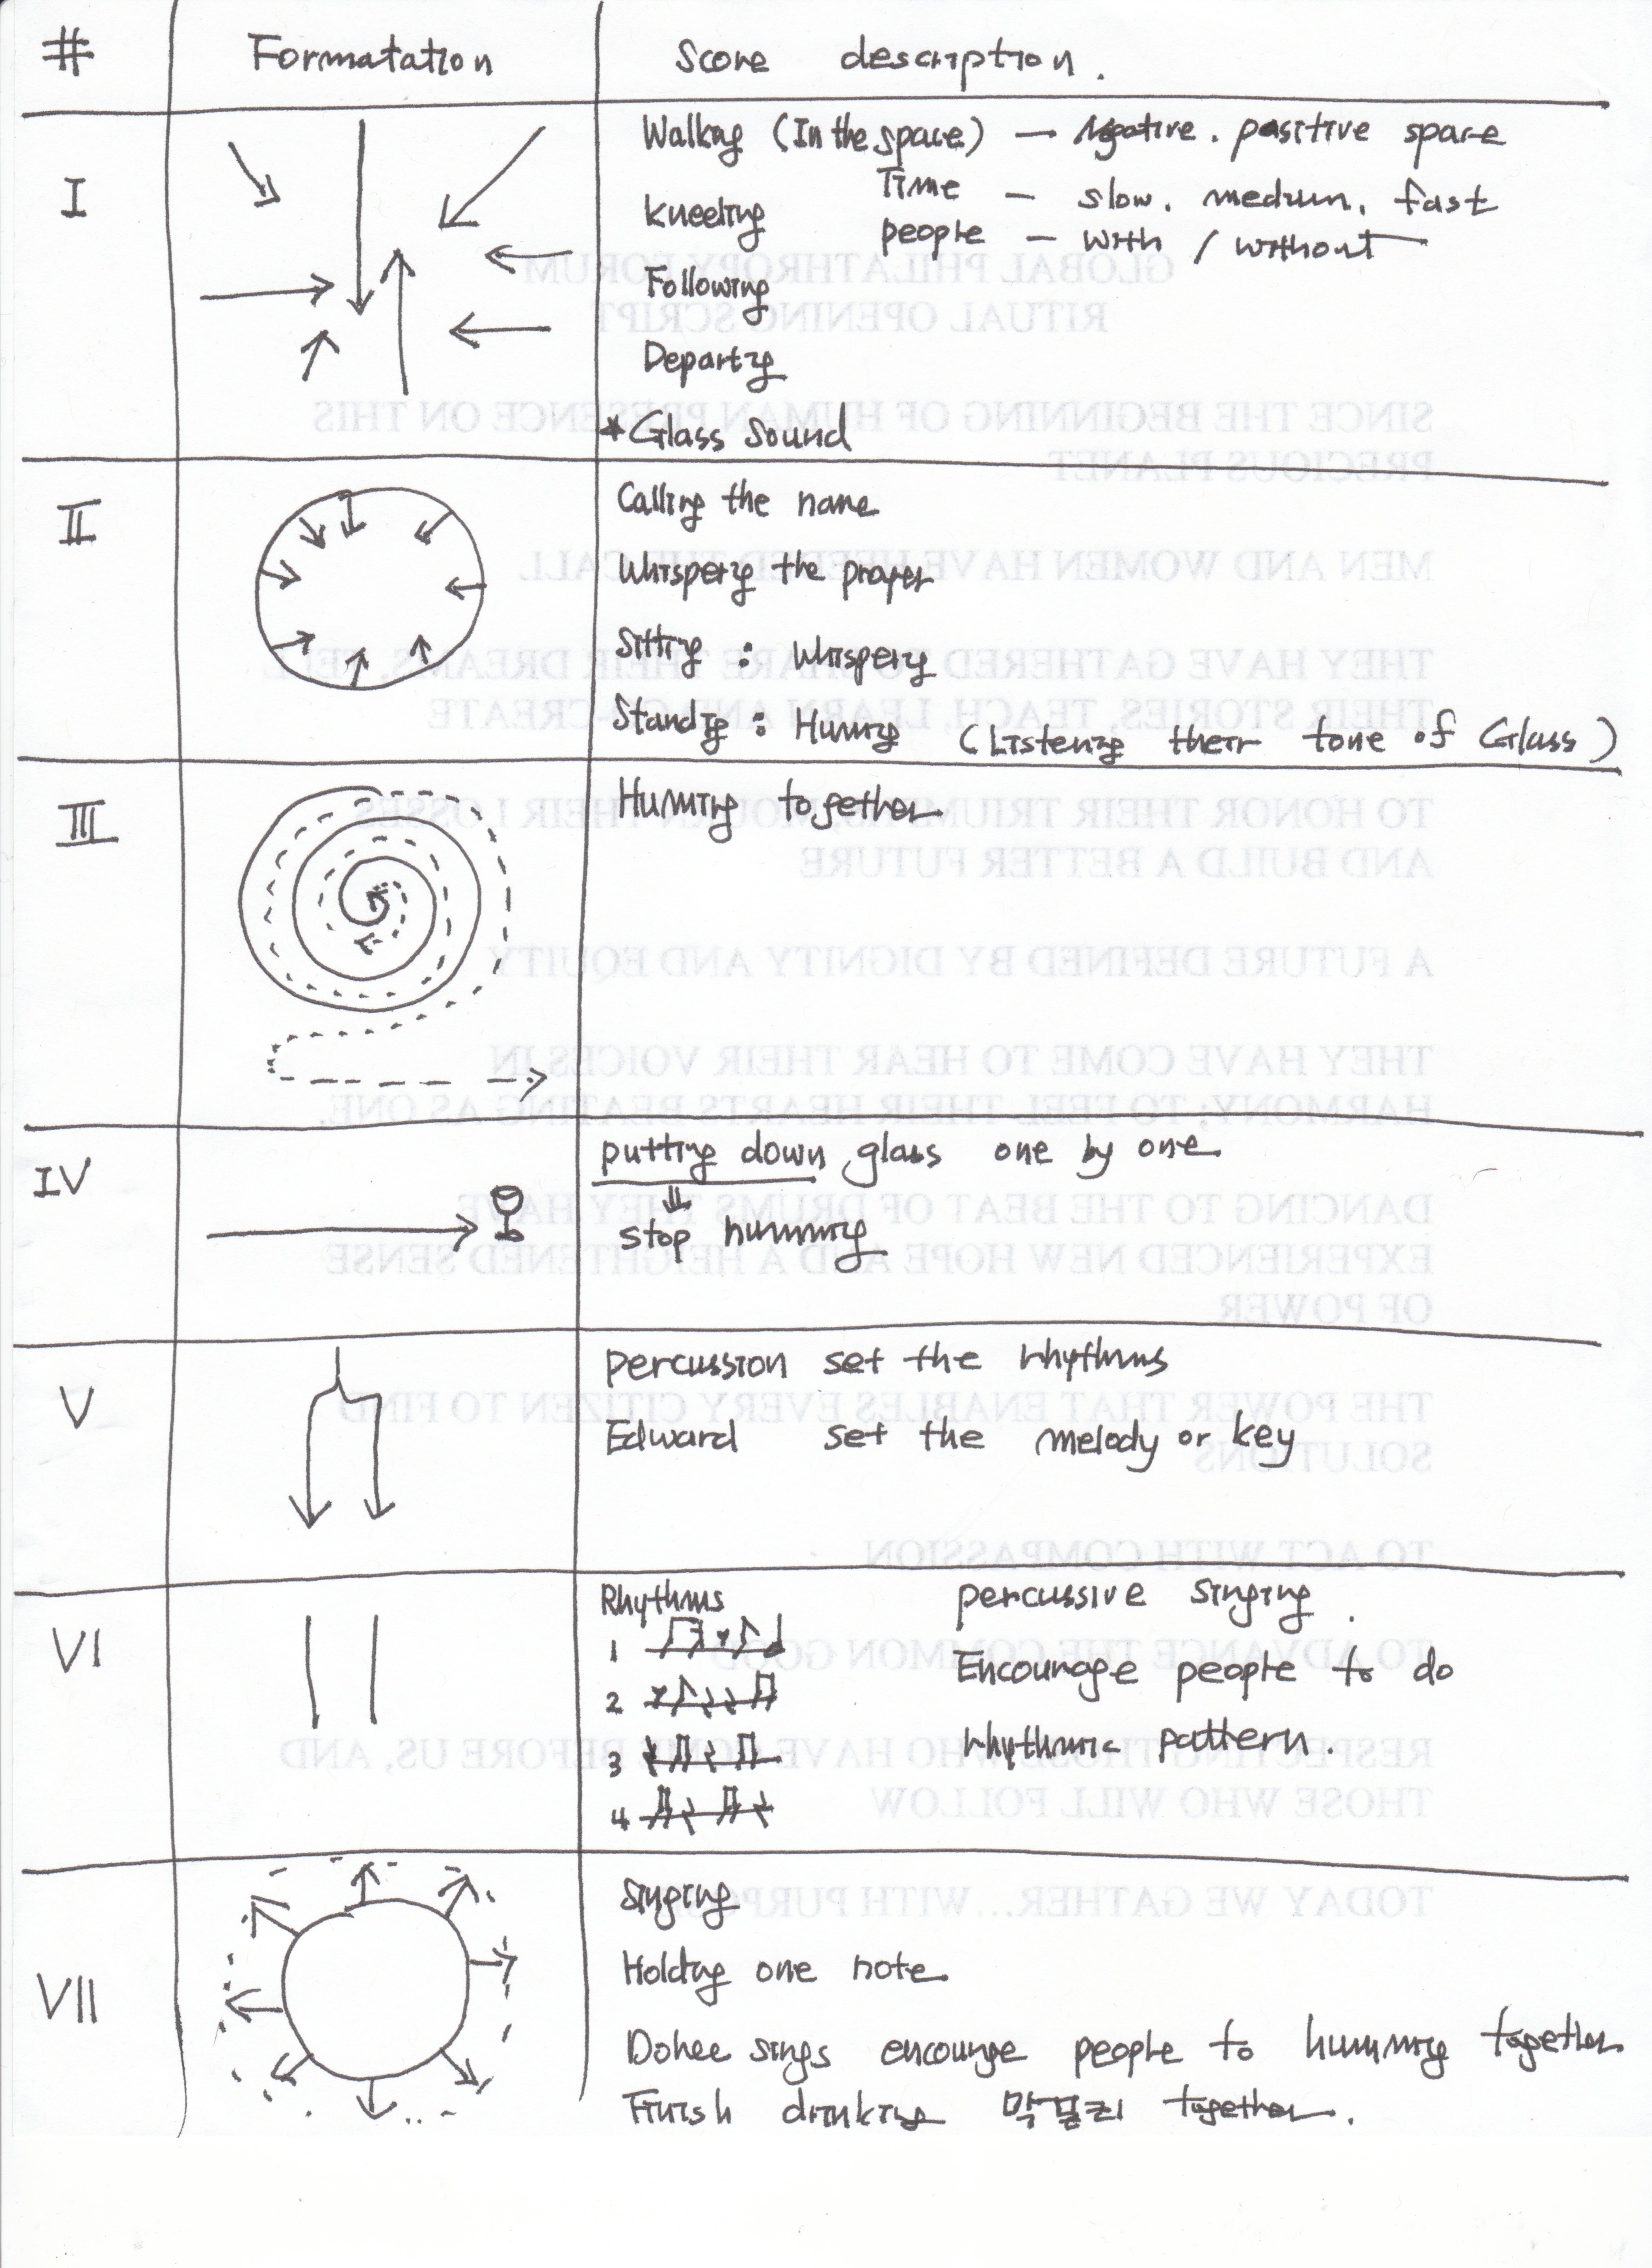 # Formatation Score description.
I
Walking (In the space) — Negative. positive space
Time — slow. medium. fast
Kneeling
people — with / without
Following
Departing
*Glass Sound
II
Calling the name
Whispering the prayer
Sitting : Whispering
Standing : Huming (Listening their tone of Glass)
III
Huming together
IV
putting down glass one by one
⇓
stop humming
V
percussion set the rhythms
Edward set the melody or key
VI
Rhythms percussive singing.
1
Encourage people to do
2
rhythmic pattern.
3
4
VII
Singing
Holding one note
Dohee sings encourage people to humming together
Finish drinking 막걸리 together.